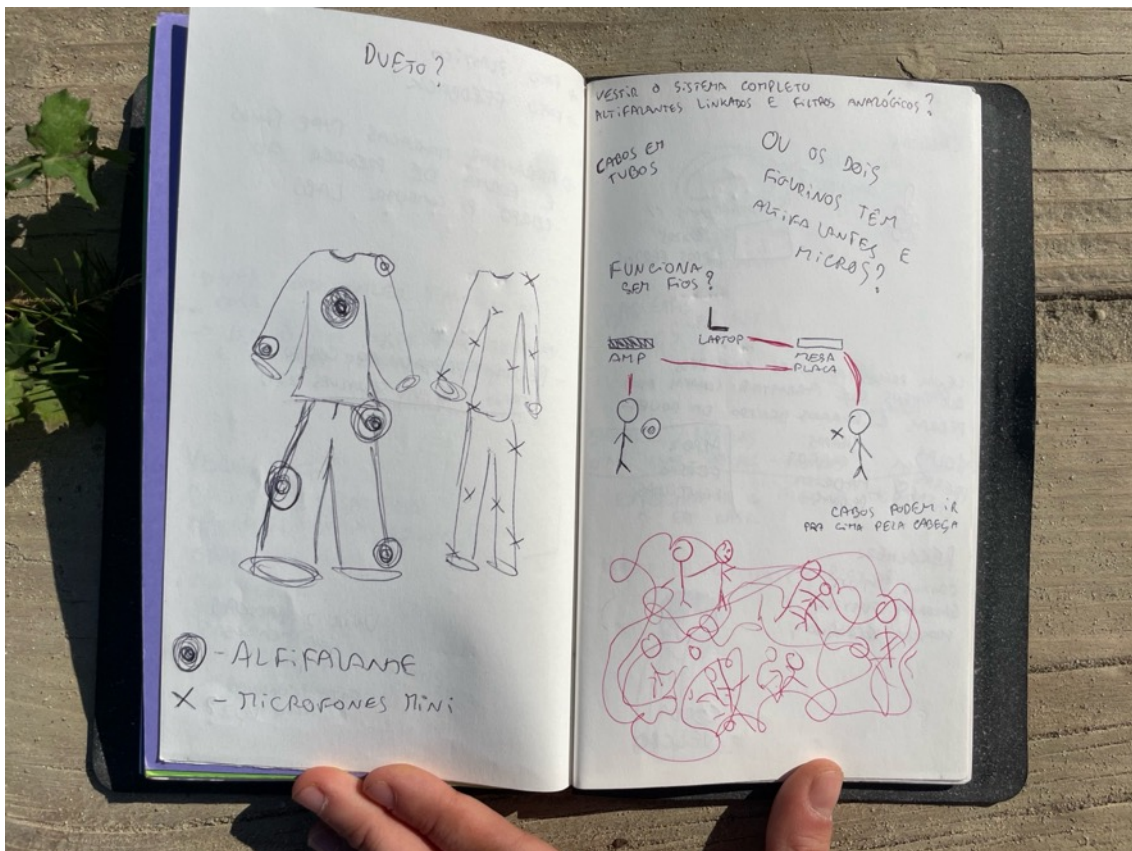 DUETO?
- ALTIFALANTE
X - MICROFONES MINI
VESTIR O SISTEMA COMPLETO
ALTIFALANTES LINKADOS E FILTROS ANALÓGICOS?
CABOS EM
TUBOS
OU OS DOIS
FIGURINOS TÊM
ALTIFALANTES E
MICROS?
FUNCIONA
SEM FIOS?
LAPTOP
AMP
MESA
PLACA
CABOS PODEM IR
PRA CIMA PELA CABEÇA